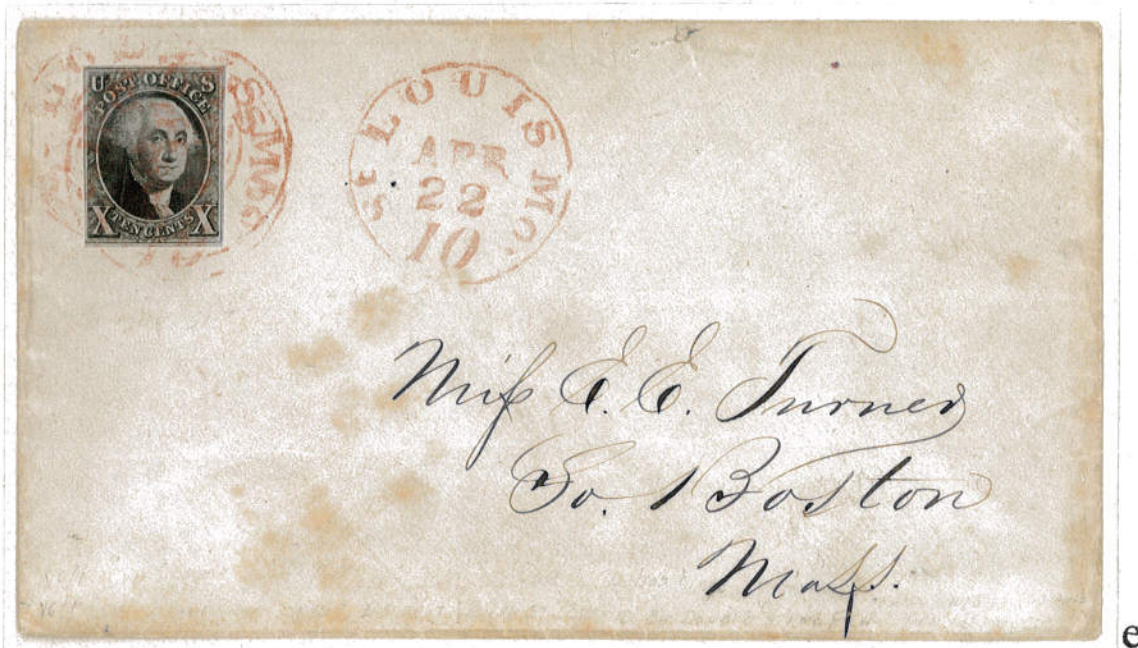 U S
POST OFFICE
X TEN CENTS X
St LOUIS Mo.
APR
22
10
Miſs E. E. Turner
So. Boston
Maſs.
e